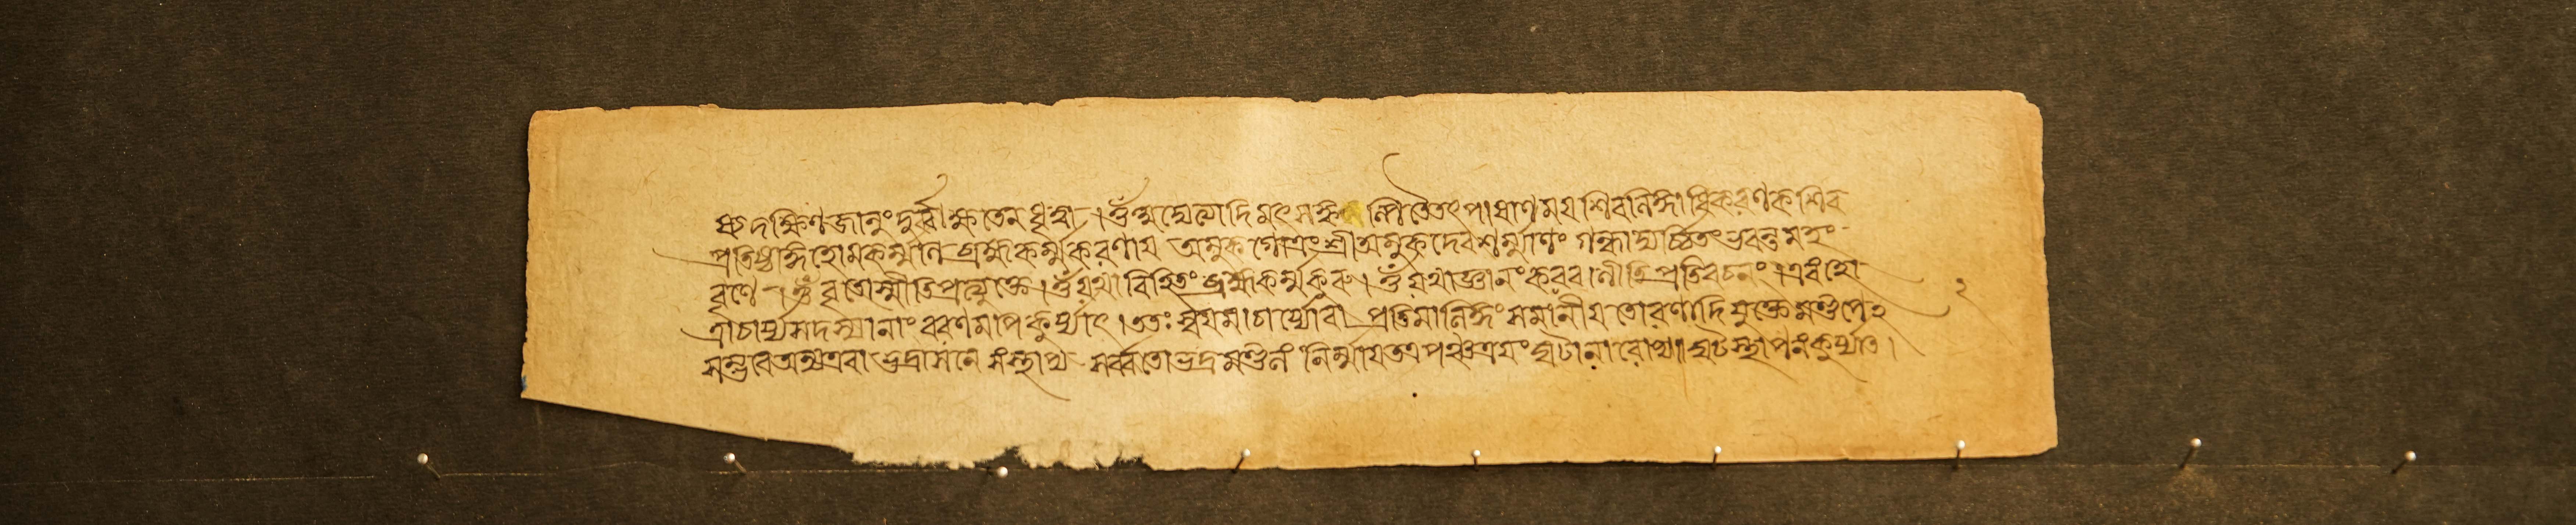 দক্ষিণজানুং দূর্ব্বাক্ষতেন ধৃত্বা । ওঁ অদ্যেত্যাদি মৎসঙ্কল্পিতৈতৎপাষাণময়শিবলিঙ্গাধিকরণকশিব
প্রতিষ্ঠাঙ্গহোমকর্ম্মণি ব্রহ্মকর্ম্মকরণায় অমুকগোত্রং শ্রীঅমুকদেবশর্ম্মাণং গন্ধাদ্যর্চ্চিতং ভবন্তমহং
বৃণে । ওঁ বৃতোস্মীতি প্রত্যুক্তে । ওঁ যথাবিহিতং ব্রহ্মকর্ম্ম কুরু । ওঁ যথাজ্ঞানং করবাণীতি প্রতিবচনং । এবং হো
ত্রাচার্য্যসদস্যানাং বরণমপি কুর্য্যাৎ । ততঃ স্বয়মাচার্য্যো বা প্রতিমালিঙ্গং সমানীয় তোরণাদিযুক্তে মণ্ডপে ২
সম্ভবে অন্যত্র বা ভদ্রাসনে সংস্থাপ্য সর্ব্বতোভদ্রমণ্ডলং নির্ম্মায় তত্র পঞ্চ ঘটানারোপ্য ঘটস্থাপনং কুর্য্যাৎ ।
২